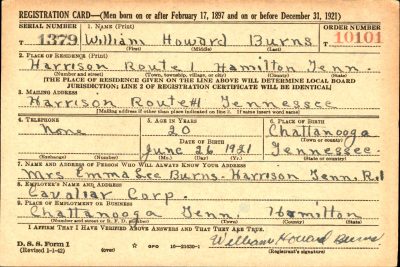 REGISTRATION CARD—(Men born on or after February 17, 1897 and on or before December 31, 1921)
SERIAL NUMBER 1. NAME (Print) ORDER NUMBER
T 1379 William Howard Burns T 10101
(First) (Middle) (Last)
2. PLACE OF RESIDENCE (Print)
Harrison Route 1 Hamilton Tenn.
(Number and street) (Town, township, village, or city) (County) (State)
[THE PLACE OF RESIDENCE GIVEN ON THE LINE ABOVE WILL DETERMINE LOCAL BOARD
JURISDICTION; LINE 2 OF REGISTRATION CERTIFICATE WILL BE IDENTICAL]
3. MAILING ADDRESS
Harrison Route #1 Tennessee
[Mailing address if other than place indicated on line 2. If same insert word same]
4. TELEPHONE 5. AGE IN YEARS 6. PLACE OF BIRTH
None 20 Chattanooga
DATE OF BIRTH (Town or county)
June 26 1921 Tennessee
(Exchange) (Number) (Mo.) (Day) (Yr.) (State or country)
7. NAME AND ADDRESS OF PERSON WHO WILL ALWAYS KNOW YOUR ADDRESS
Mrs Emma Lee Burns - Harrison Tenn, R.1
8. EMPLOYER'S NAME AND ADDRESS
Cavalier Corp.
9. PLACE OF EMPLOYMENT OR BUSINESS
Chattanooga Tenn. Hamilton
(Number and street or R. F. D. number) (Town) (County) (State)
I AFFIRM THAT I HAVE VERIFIED ABOVE ANSWERS AND THAT THEY ARE TRUE.
D. S. S. Form 1
(Revised 1-1-42) (over) GPO 16—21630-1
William Howard Burns
(Registrant's signature)